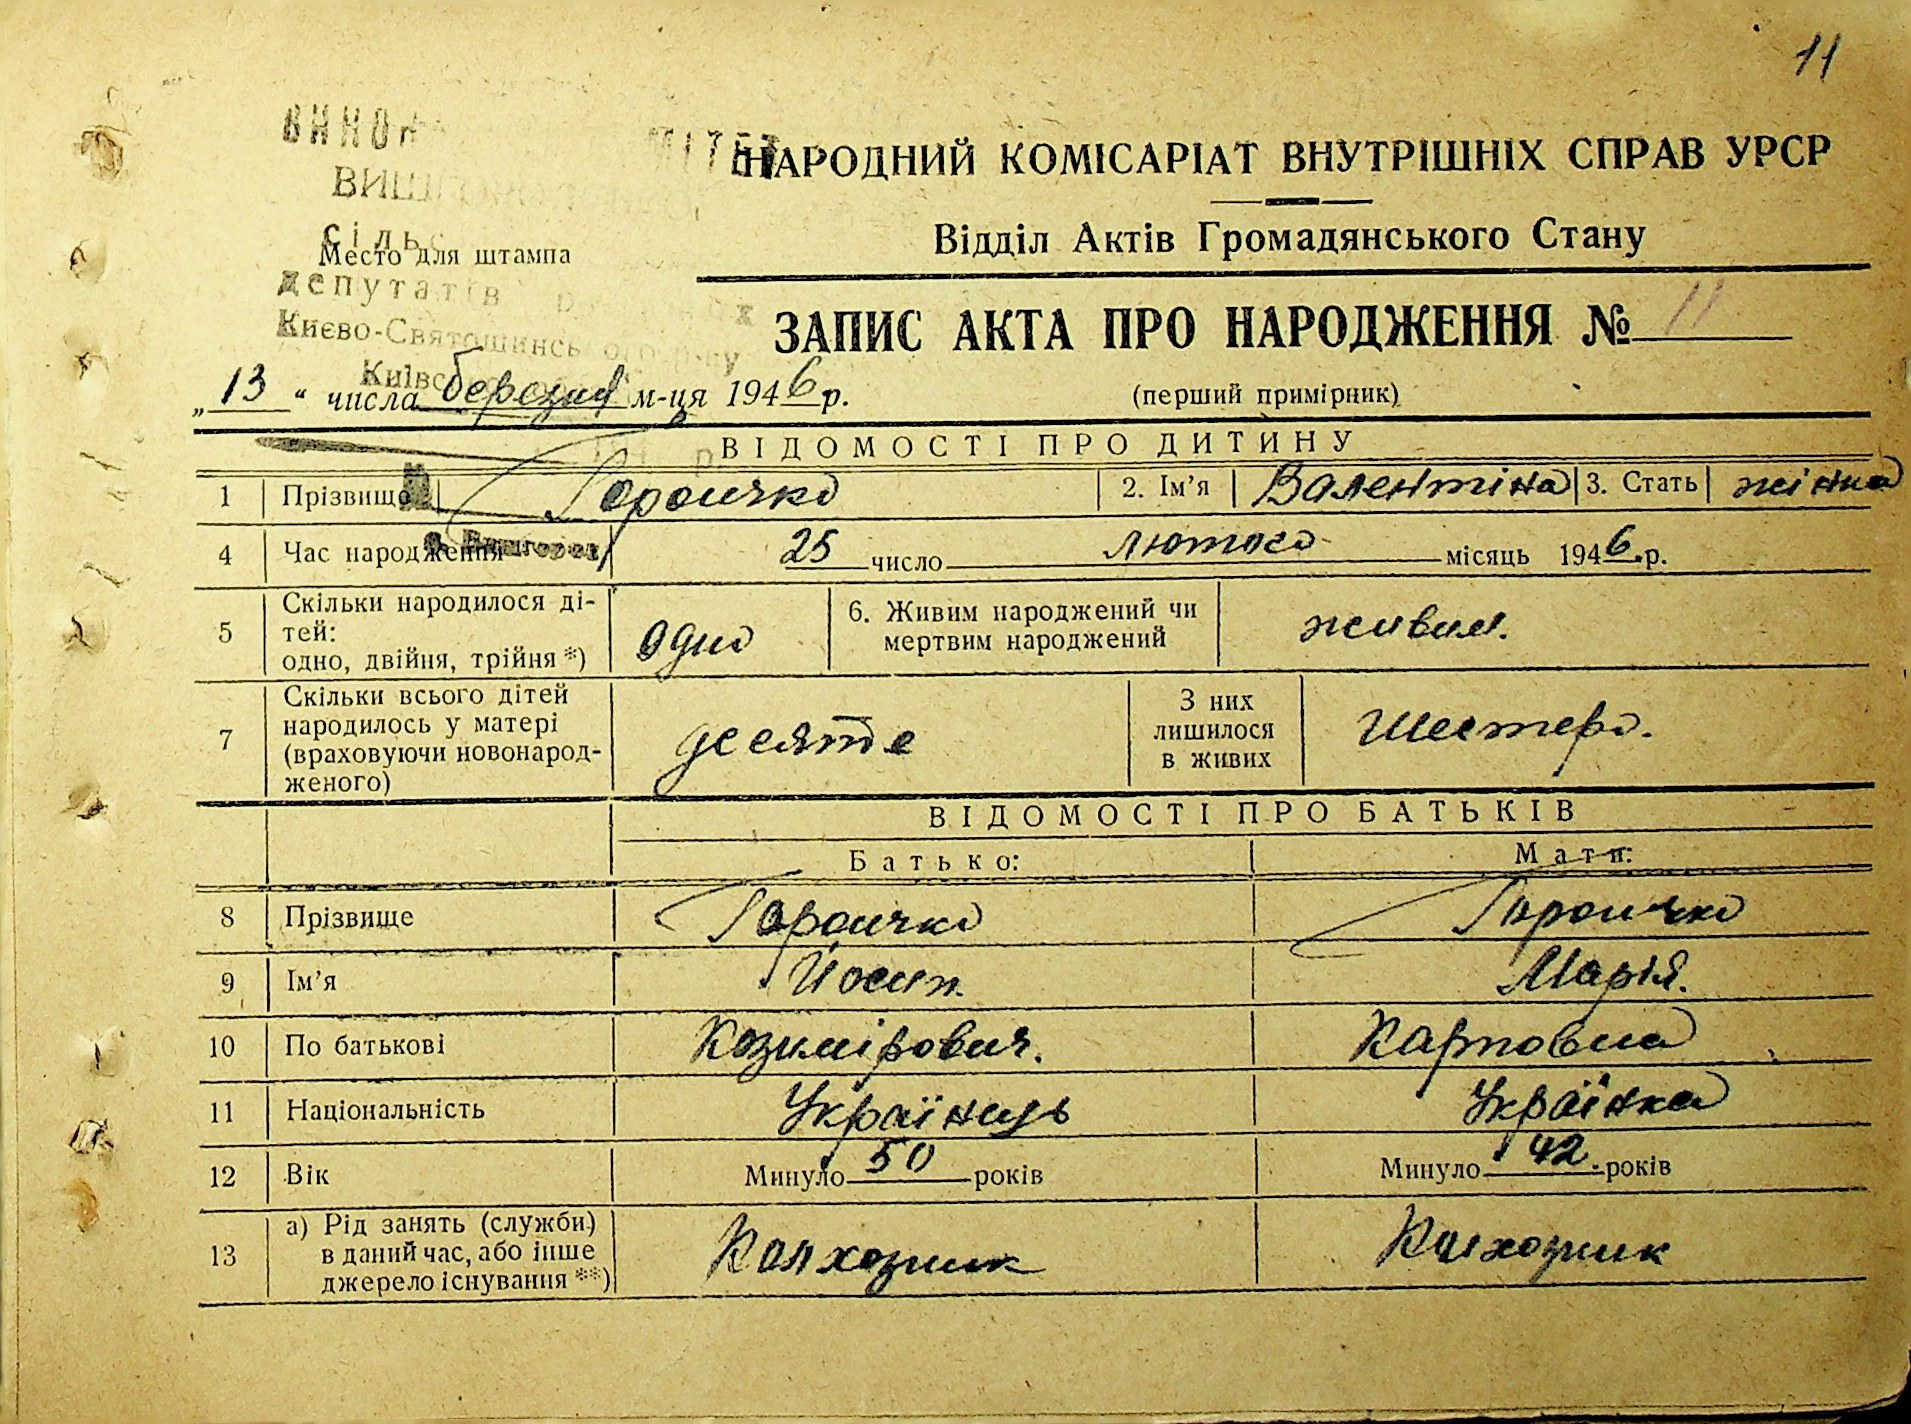 11
ВИКОН МІТЕТ
ВИШ
НАРОДНИЙ КОМІСАРІАТ ВНУТРІШНІХ СПРАВ УРСР
сільс
Место для штампа
Відділ Актів Громадянського Стану
депутатів
Києво-Святошинського р-ну
Київс
ЗАПИС АКТА ПРО НАРОДЖЕННЯ № 11
„ 13 “ числа березня м-ця 1946 р.
(перший примірник)
ВІДОМОСТІ ПРО ДИТИНУ
1 Прізвище 2. Ім’я Валентіна 3. Стать жінка
с. Вишгород
4 Час народження 25 число лютого місяць 1946.р.
5 Скільки народилося ді-
тей:
одно, двійня, трійня *) одно
6. Живим народжений чи
мертвим народжений живим.
7 Скільки всього дітей
народилось у матері
(враховуючи новонарод-
женого) десяте
З них
лишилося
в живих Шестеро.
ВІДОМОСТІ ПРО БАТЬКІВ
Батько: Мати:
8 Прізвище
9 Ім’я Йосип. Марія.
10 По батькові Козимірович. Карповна
11 Національність Українець Українка
12 Вік Минуло 50 років Минуло 42. років
13 а) Рід занять (служби)
в даний час, або інше
джерело існування **) Колхозник Колхозник